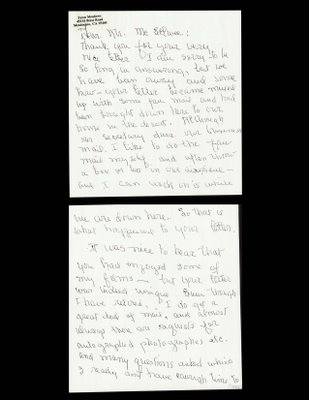 Dear Mr. Mc
Thank you for your very
nice letter I am sorry to be
so long in answering, but we
have been away and some
how - your letter became mixed
up with some fan mail and had
been brought down here to our
home in the desert. Although
our secretary does our business
mail. I like to do the fan
mail myself and often throw
a box of it in our
and I can work on it while
we are down here. So that is
what happened to your letter.
It was nice to hear that
you have enjoyed some of
my films - but your letter
was indeed unique. Even though
I have retired, I do get a
great deal of mail, and almost
always there are requests for
autographed photographs etc.
and many questions asked which
I really don't have enough time to